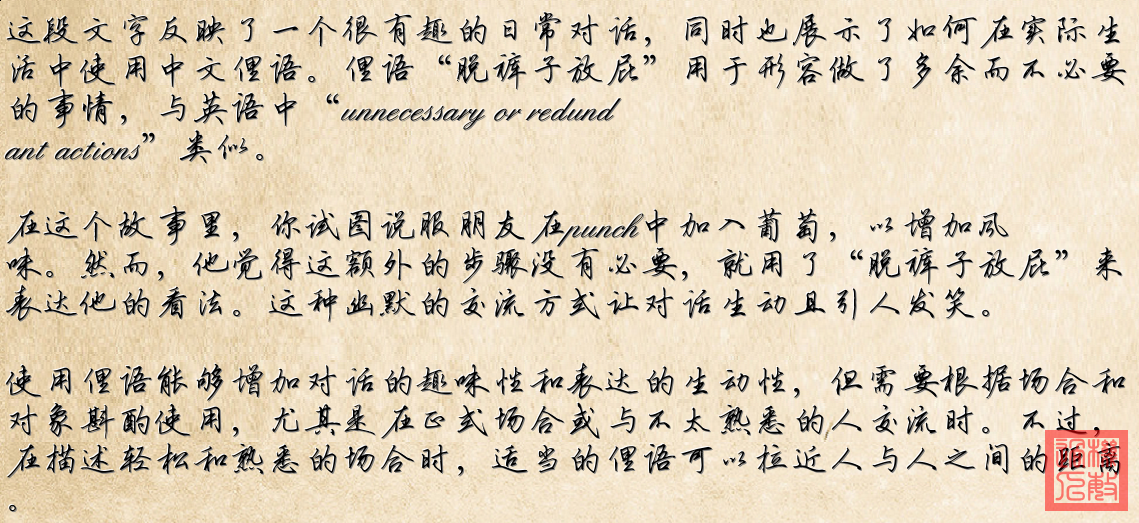 这段文字反映了一个很有趣的日常对话，同时也展示了如何在实际生
活中使用中文俚语。俚语“脱裤子放屁”用于形容做了多余而不必要
的事情，与英语中“unnecessary or redund
ant actions”类似。
在这个故事里，你试图说服朋友在punch中加入葡萄，以增加风
味。然而，他觉得这额外的步骤没有必要，就用了“脱裤子放屁”来
表达他的看法。这种幽默的交流方式让对话生动且引人发笑。
使用俚语能够增加对话的趣味性和表达的生动性，但需要根据场合和
对象斟酌使用，尤其是在正式场合或与不太熟悉的人交流时。不过，
在描述轻松和熟悉的场合时，适当的俚语可以拉近人与人之间的距离
。